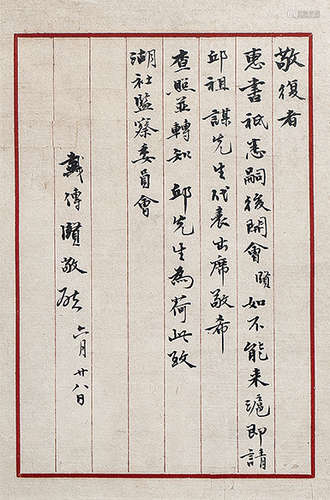 敬復者
惠書祗悉嗣後開會賢如不能來滬即請
邱祖謀先生代表出席敬希
查照並轉知邱先生為荷此致
湖社監察委員會
戴傳賢敬啟 六月廿八日